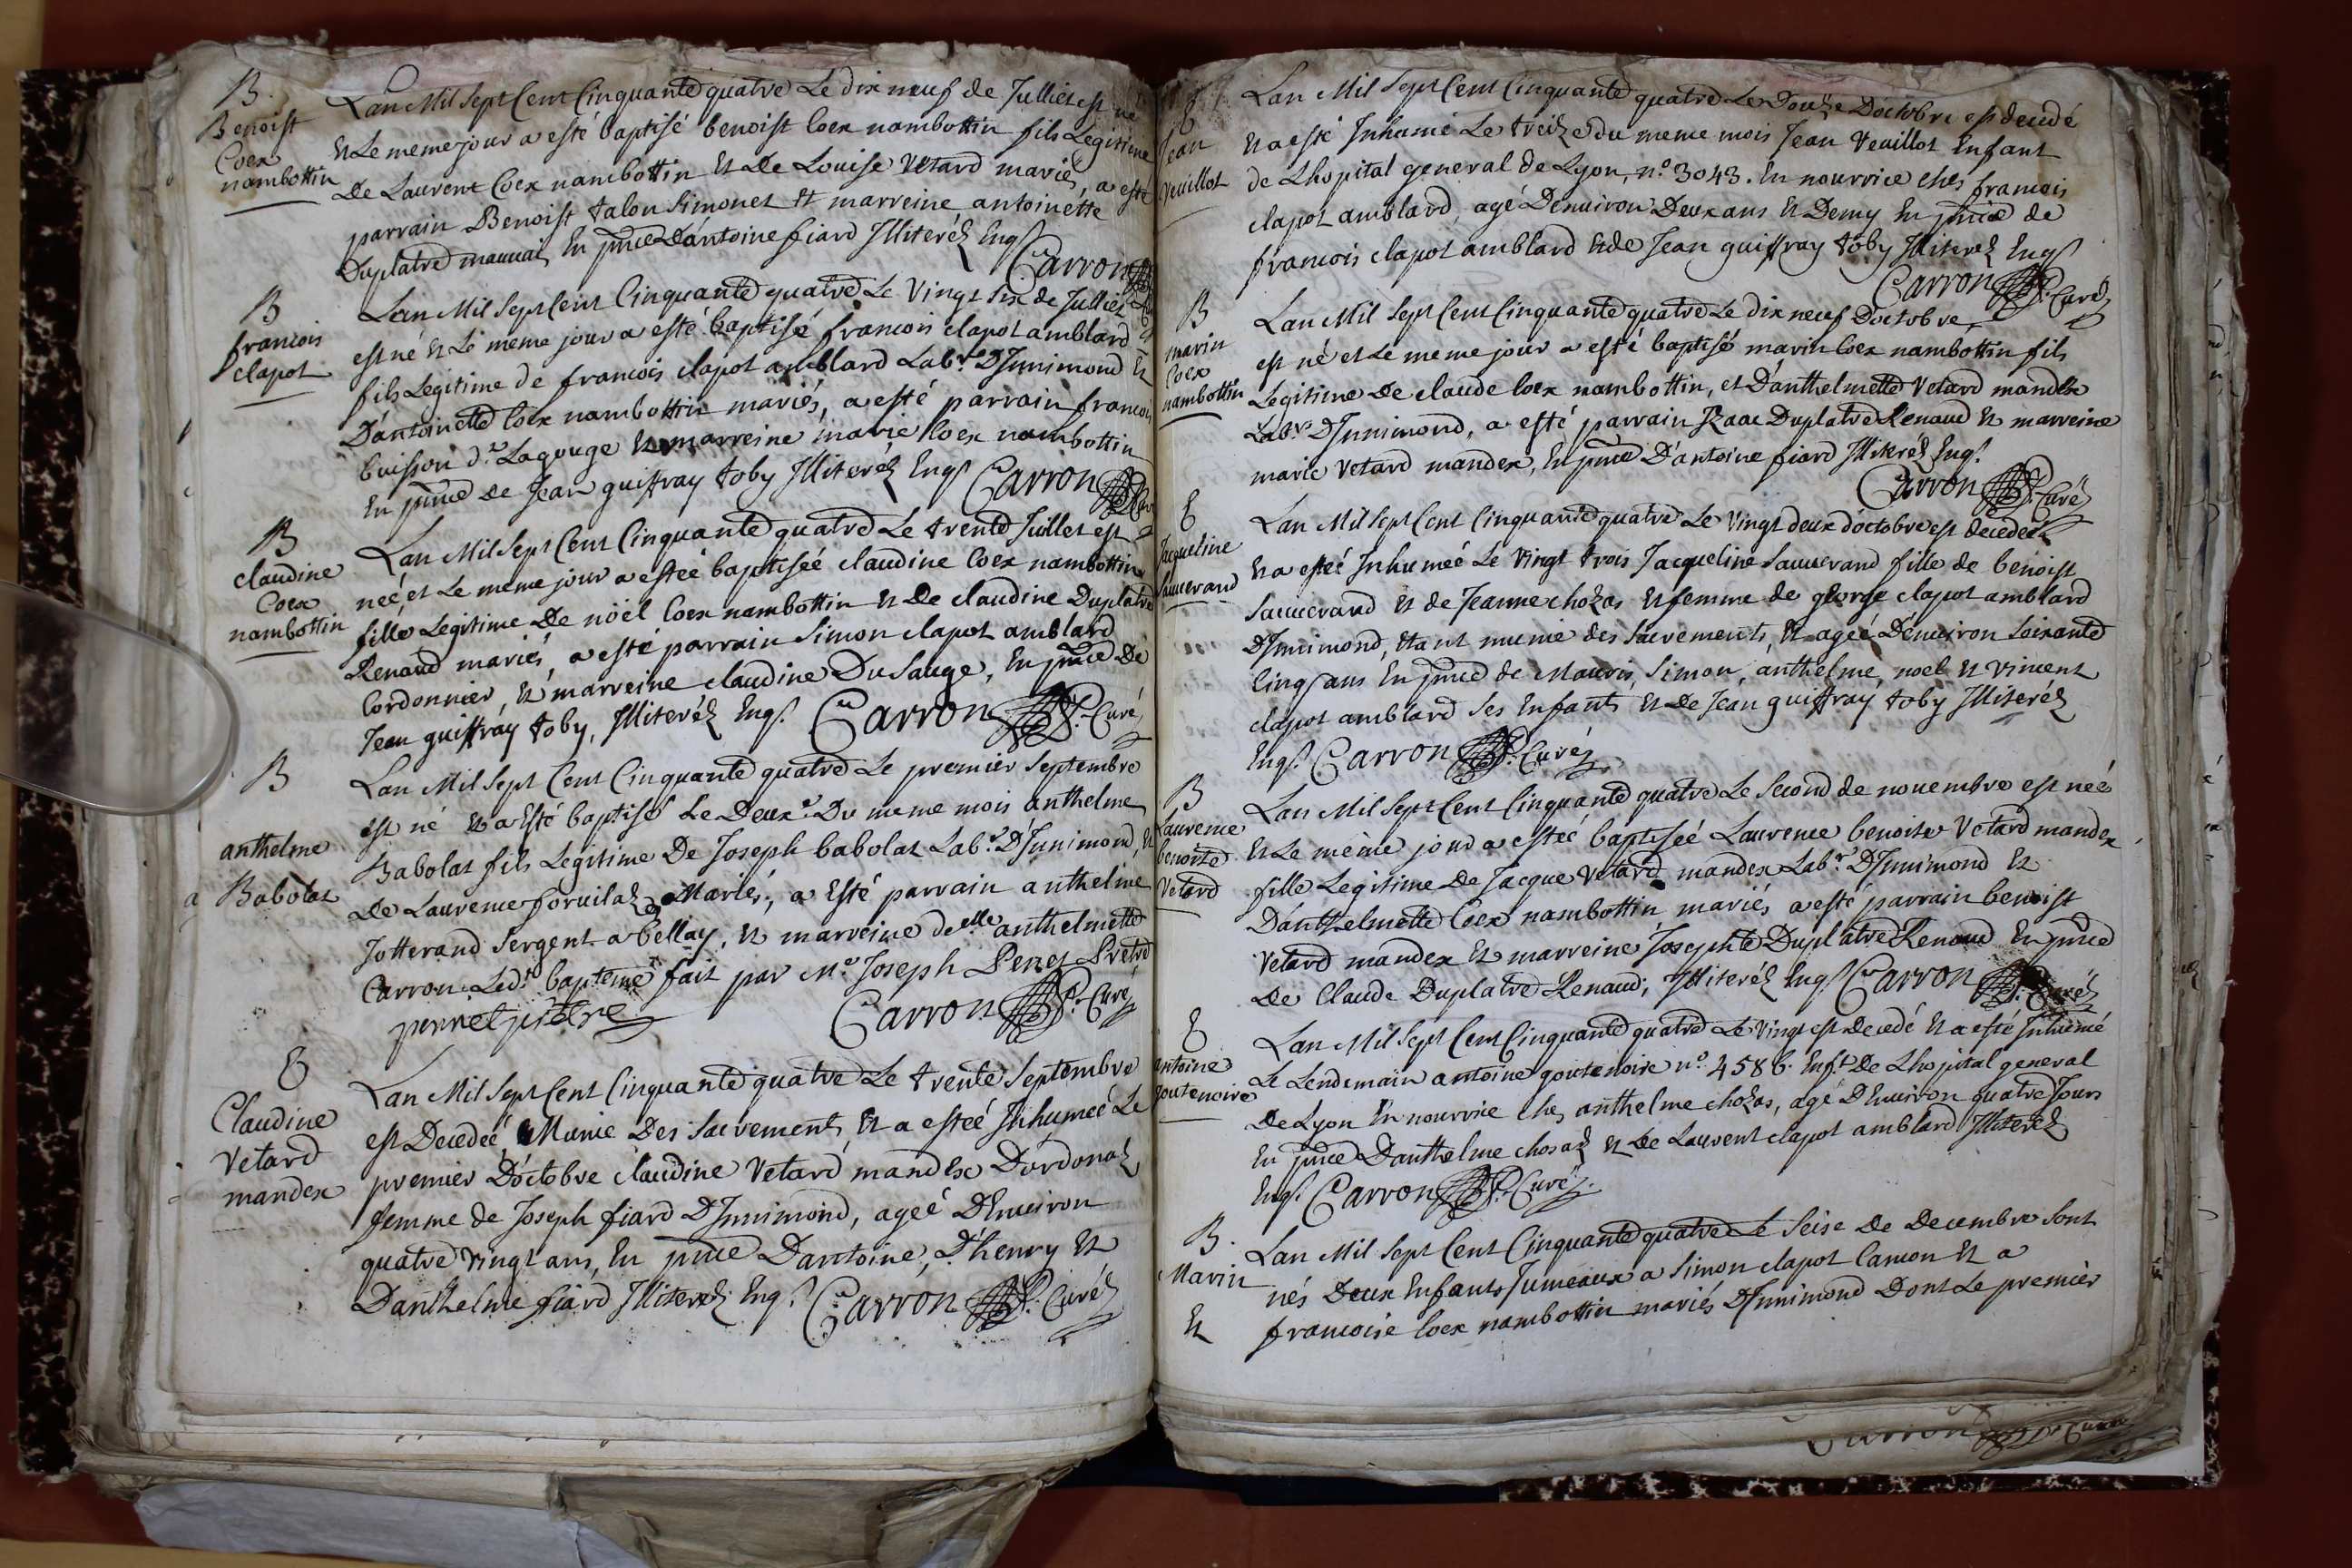 B.
Benoist
Coex
nambottin
Lan Mil Sept Cent Cinquante quatre Le dix neuf de Julliet est né
Et Le meme jour a esté baptisé benoist Coex nambottin fils Legitime
De Laurent Coex nambottin Et De Louise Vetard mariés, a esté
parrain Benoist talon Simonet Et marreine antoinette
Duplatre mauvais En pnce D'antoine fiard Illiteréz Enqs
Carron
B
francois
clapot
Lan Mil Sept Cent Cinquante quatre Le Vingt six de Julliet
est né Et Le meme jour a esté baptisé francois clapot amblard
fils Legitime de francois clapot amblard Labr. D'Innimond Et
D'antoinette Coex nambottin mariés, a esté parrain francois
buisson d.t Lagouge Et marreine marie Coex nambottin
En pnce de Jean guiffray toby Illiteréz Enqs Carron
B
claudine
Coex
nambottin
Lan Mil Sept Cent Cinquante quatre Le trente Juillet est
neé, et Le meme jour a esteé baptiseé claudine Coex nambottin
fille Legitime De noël Coex nambottin Et De claudine Duplatre
Renaud mariés, a esté parrain Simon clapot amblard
Cordonnier, Et marreine claudine Du Sauge, En pnce De
Jean guiffray toby, Illiteréz Enqs. Carron P. Curé
B
anthelme
Babolat
Lan Mil Sept Cent Cinquante quatre Le premier Septembre
est né Et a Esté baptisé Le Deuxe. Du meme mois anthelme
Babolat fils Legitime De Joseph babolat Labr. D'Innimond, Et
De Laurence forvilaz Mariés, a Esté parrain anthelme
Jotterand Sergent a bellay, Et marreine delle anthelmette
Carron. Ledt bapteme fait par Mr. Joseph Penet Prêtre
pennet prêtre Carron P. Curé
E
Claudine
Vetard
mandex
Lan Mil Sept Cent Cinquante quatre Le trente Septembre
est Decedeé, Munie Des Sacrements, Et a esteé Inhumeé Le
premier D'octobre claudine Vetard mandex Dordonaz
femme de Joseph fiard D'Innimond, ageé D'Environ
quatre Vingt ans, En pnce D'antoine, D'henry Et
D'anthelme fiard Illiteréz Enqs. Carron P. Curé
E
Jean
Veuillot
Lan Mil Sept Cent Cinquante quatre Le Douze D'octobre est decedé
Et a esté Inhumé Le treize du meme mois Jean Veuillot Enfant
de Lhopital general de Lyon, n.o 3043. En nourrice chés francois
clapot amblard, agé Denviron Deux ans Et Demy En pnce de
francois clapot amblard Et de Jean guiffray toby Illiterez Enqs
Carron P. Curé
B
marin
Coex
nambottin
Lan Mil Sept Cent Cinquante quatre Le dix neuf D'octobre
est né et Le meme jour a esté baptisé marin Coex nambottin fils
Legitime De claude Coex nambottin, et D'anthelmette Vetard mandex
Labr. D'Innimond, a esté parrain Isaac Duplatre Renaud Et marreine
marie Vetard mandex, En pnce D'antoine fiard Illiteréz Enqs.
Carron P. Curé
E
Jacqueline
Sauverand
Lan Mil Sept Cent Cinquante quatre Le Vingt deux doctobre est decedeé
Et a esteé Inhumeé Le Vingt trois Jacqueline Sauverand fille de benoist
Sauverand Et de Jeanne chozas Et femme de george clapot amblard
D'Innimond, Etant munie des Sacrements, Et ageé Denviron Soixante
Cinq ans En pnce de Mauris, Simon, anthelme, noel Et Vincent
clapot amblard Ses Enfants Et De Jean guiffray toby Illiteréz
Enqs. Carron P. Curé
B
Laurence
benoite
Vetard
Lan Mil Sept Cent Cinquante quatre Le Second de novembre est neé
Et Le même jour a esteé baptiseé Laurence benoite Vetard mandex
fille Legitime De Jacque Vetard mandex Labr. D'Innimond Et
D'anthelmette Coex nambottin mariés a esté parrain benoist
Vetard mandex Et marreine Josephte Duplatre Renaud En pnce
De Claude Duplatre Renaud, Illiteréz Enqs Carron P. Curé
E
antoine
goutenoire
Lan Mil Sept Cent Cinquante quatre Le Vingt est Decedé Et a esté Inhumé
Le Lendemain antoine goutenoire n.o 4586. Enft. De Lhopital general
De Lyon En nourrice Ches anthelme chozas, agé D'Environ quatre Jours
En pnce D'anthelme chosaz Et De Laurent clapot amblard Illiteréz
Enqs. Carron P. Curé.
B.
Marin
Et
Lan Mil Sept Cent Cinquante quatre Le Seise De Decembre Sont
nés Deux Enfants Jumeaux a Simon clapot Camon Et a
francoise Coex nambottin mariés D'Innimond Dont Le premier
Carron